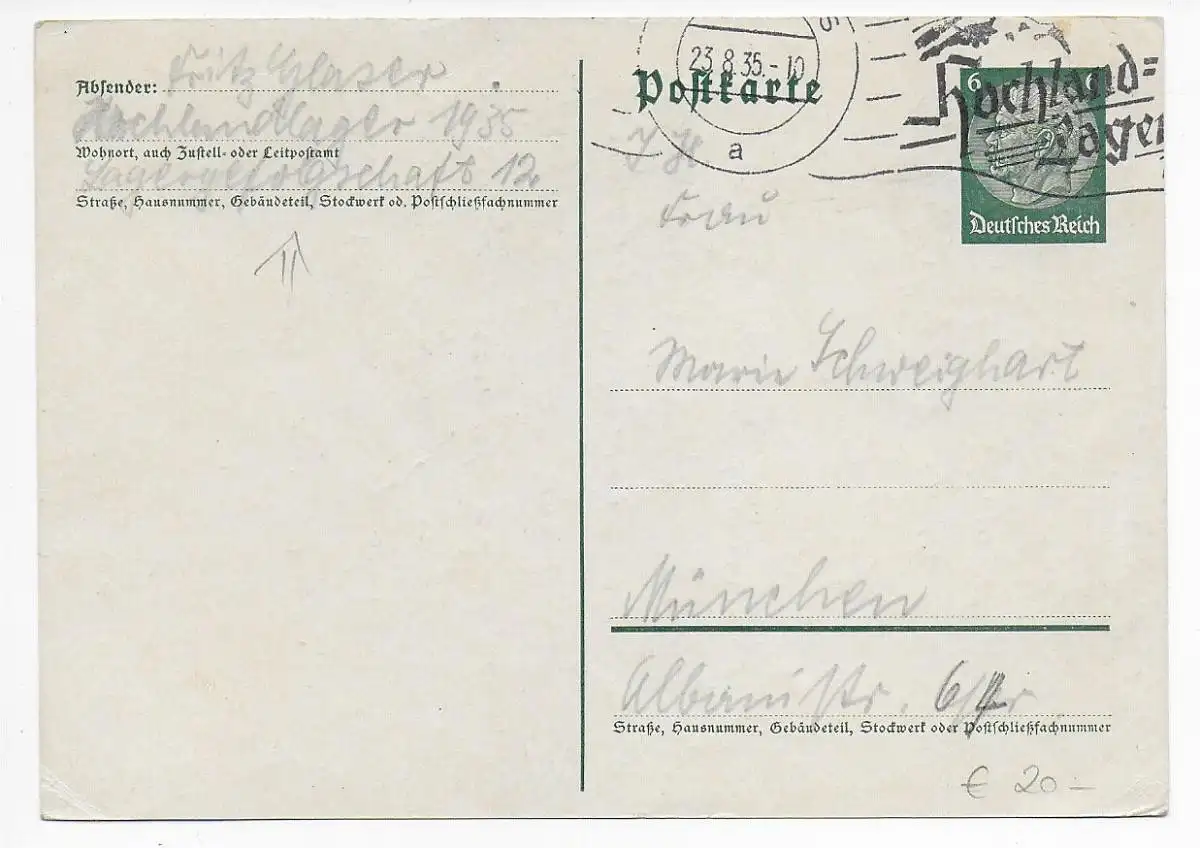 Absender: Fritz Glaser
Hochlandlager 1935
Wohnort, auch Zustell- oder Leitpostamt
Lagergefolgschaft 12
Straße, Hausnummer, Gebäudeteil, Stockwerk od. Postschließfachnummer
23.8.35.-10
a
Postkarte
Hochland=
Lager
6 6
Deutsches Reich
Frau
Marie Schweighart
München
Albanistr. 6/
Straße, Hausnummer, Gebäudeteil, Stockwerk oder Postschließfachnummer
€ 20-